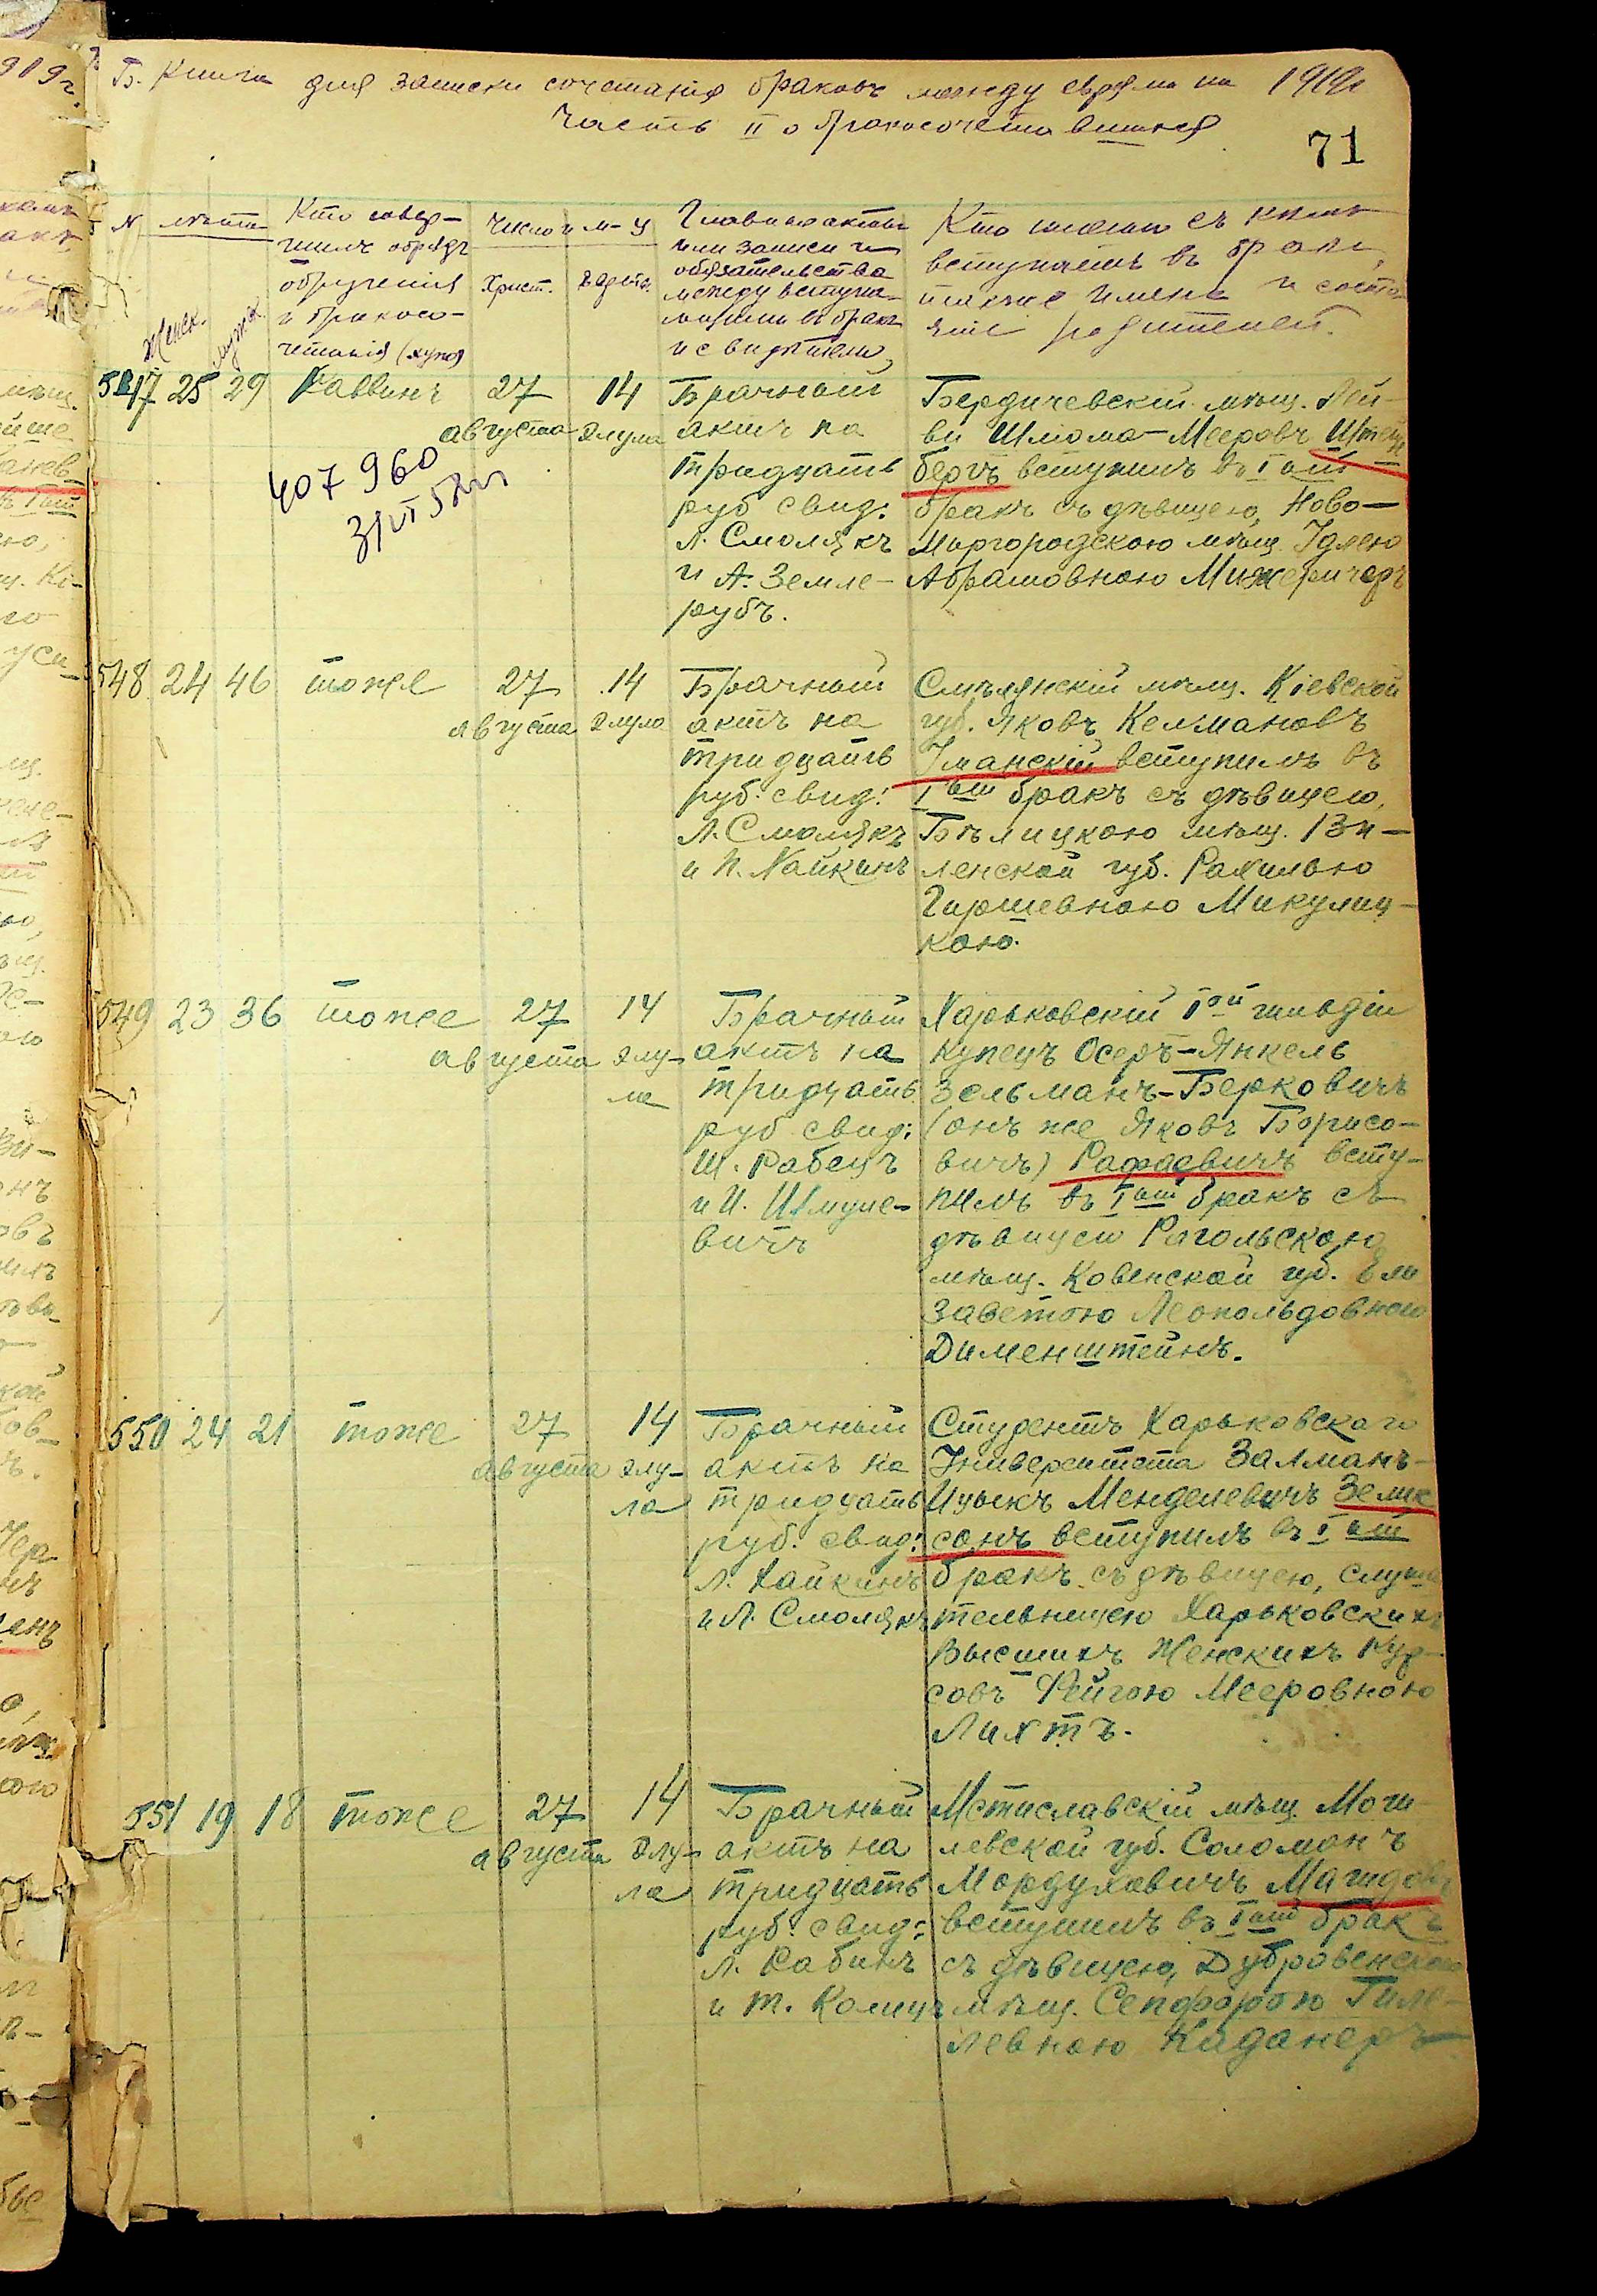 Б. Книга для записки сочетанія браковъ между евреями на 1919г
Часть II о бракосочетавшихся
71
№ лѣта
Женск. мужск.
Кто совер-
шилъ обрядъ
обрученія
и бракосо-
четанія (хупо)
Число и м-ц
Христ. Еврейс.
Главные акты
или записи и
обязательства
между вступа-
ющими въ бракъ
и свидѣтели
Кто именно съ кѣмъ
вступаетъ въ бракъ,
также имена и состо-
яніе родителей.
547 25 29 Раввинъ 27 августа 14 Элула
407 960
3/VI 58
Брачный
актъ на
тридцать
руб свид:
Л. Смолякъ
и А. Земле-
рубъ.
Бердичевскій мѣщ. Лей-
ви Шліома-Мееровъ Штейн
бергъ вступилъ въ I ый
бракъ съ дѣвицею, Ново-
Миргородскою мѣщ. Идлею
Абрамовною Межеричеръ
548 24 46 тоже 27 августа 14 Элула
Брачный
актъ на
тридцать
руб. свид:
Л. Смолякъ
и П. Хайкинъ
Смѣлянскій мѣщ. Кіевской
губ. Яковъ Келмановъ
Уманскій вступилъ въ
I ый бракъ съ дѣвицею,
Бѣлицкою мѣщ. Ви-
ленской губ. Рахилью
Гиршевною Микулиц-
кою.
549 23 36 тоже 27 августа 14 Элу-
ла
Брачный
актъ на
тридцать
руб свид:
Ш. Рабецъ
и И. Шмуле-
вичъ
Харьковскій I ой гильдіи
купецъ Осеръ-Янкель
Зельманъ-Берковичъ
(онъ же Яковъ Борисо-
вичъ) Рафаевичъ всту-
пилъ въ I ый бракъ съ
дѣвицею Рагольскою
мѣщ. Ковенской губ. Ели
заветою Леопольдовною
Дименштейнъ.
550 24 21 тоже 27 августа 14 Элу-
ла
Брачный
актъ на
тридцать
руб. свид:
Л. Хайкинъ
и Л. Смолякъ
Студентъ Харьковскаго
Университета Залманъ-
Ицыкъ Менделевичъ Зелик
сонъ вступилъ въ I ый
бракъ съ дѣвицею, слуша
тельницею Харьковскихъ
Высшихъ Женскихъ Кур-
совъ Фейгою Мееровною
Лихтъ.
551 19 18 тоже 27 августа 14 Элу-
ла
Брачный
актъ на
тридцать
руб. свид:
Л. Рабинъ
и Т. Комиръ
Мстиславскій мѣщ. Моги-
левской губ. Соломонъ
Мордуховичъ Магидовъ
вступилъ въ I ый бракъ
съ дѣвицею, Дубровенскою
мѣщ. Сепфорою Гиле-
левною Каданеръ